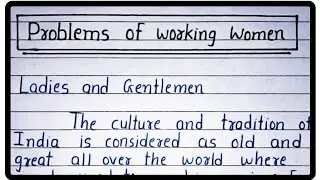 Problems of working women
Ladies and Gentlemen
The culture and tradition of
India is considered as old and
great all over the world where